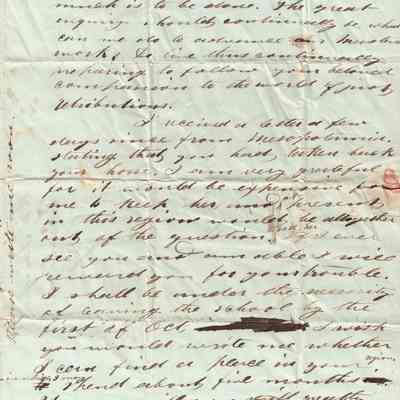 much is to be done. The great
inquiry should continually be, what
can we do to advance
work; to live thus continually
preparing to follow your beloved
companion to the world of
retributions.
I received a letter a few
days since from Mesopotamia
stating that you had taken back
your horse. I am very grateful
for it would be expensive for
me to keep her and present
in this region would be altogether
out of the question. If I ever
see you and am able I will
reward you for your trouble.
I shall be under the necessity
of leaving the school by the
first of Oct I wish
you would write me whether
I can find a place in your
region,
I spend about five months
Please write me soon